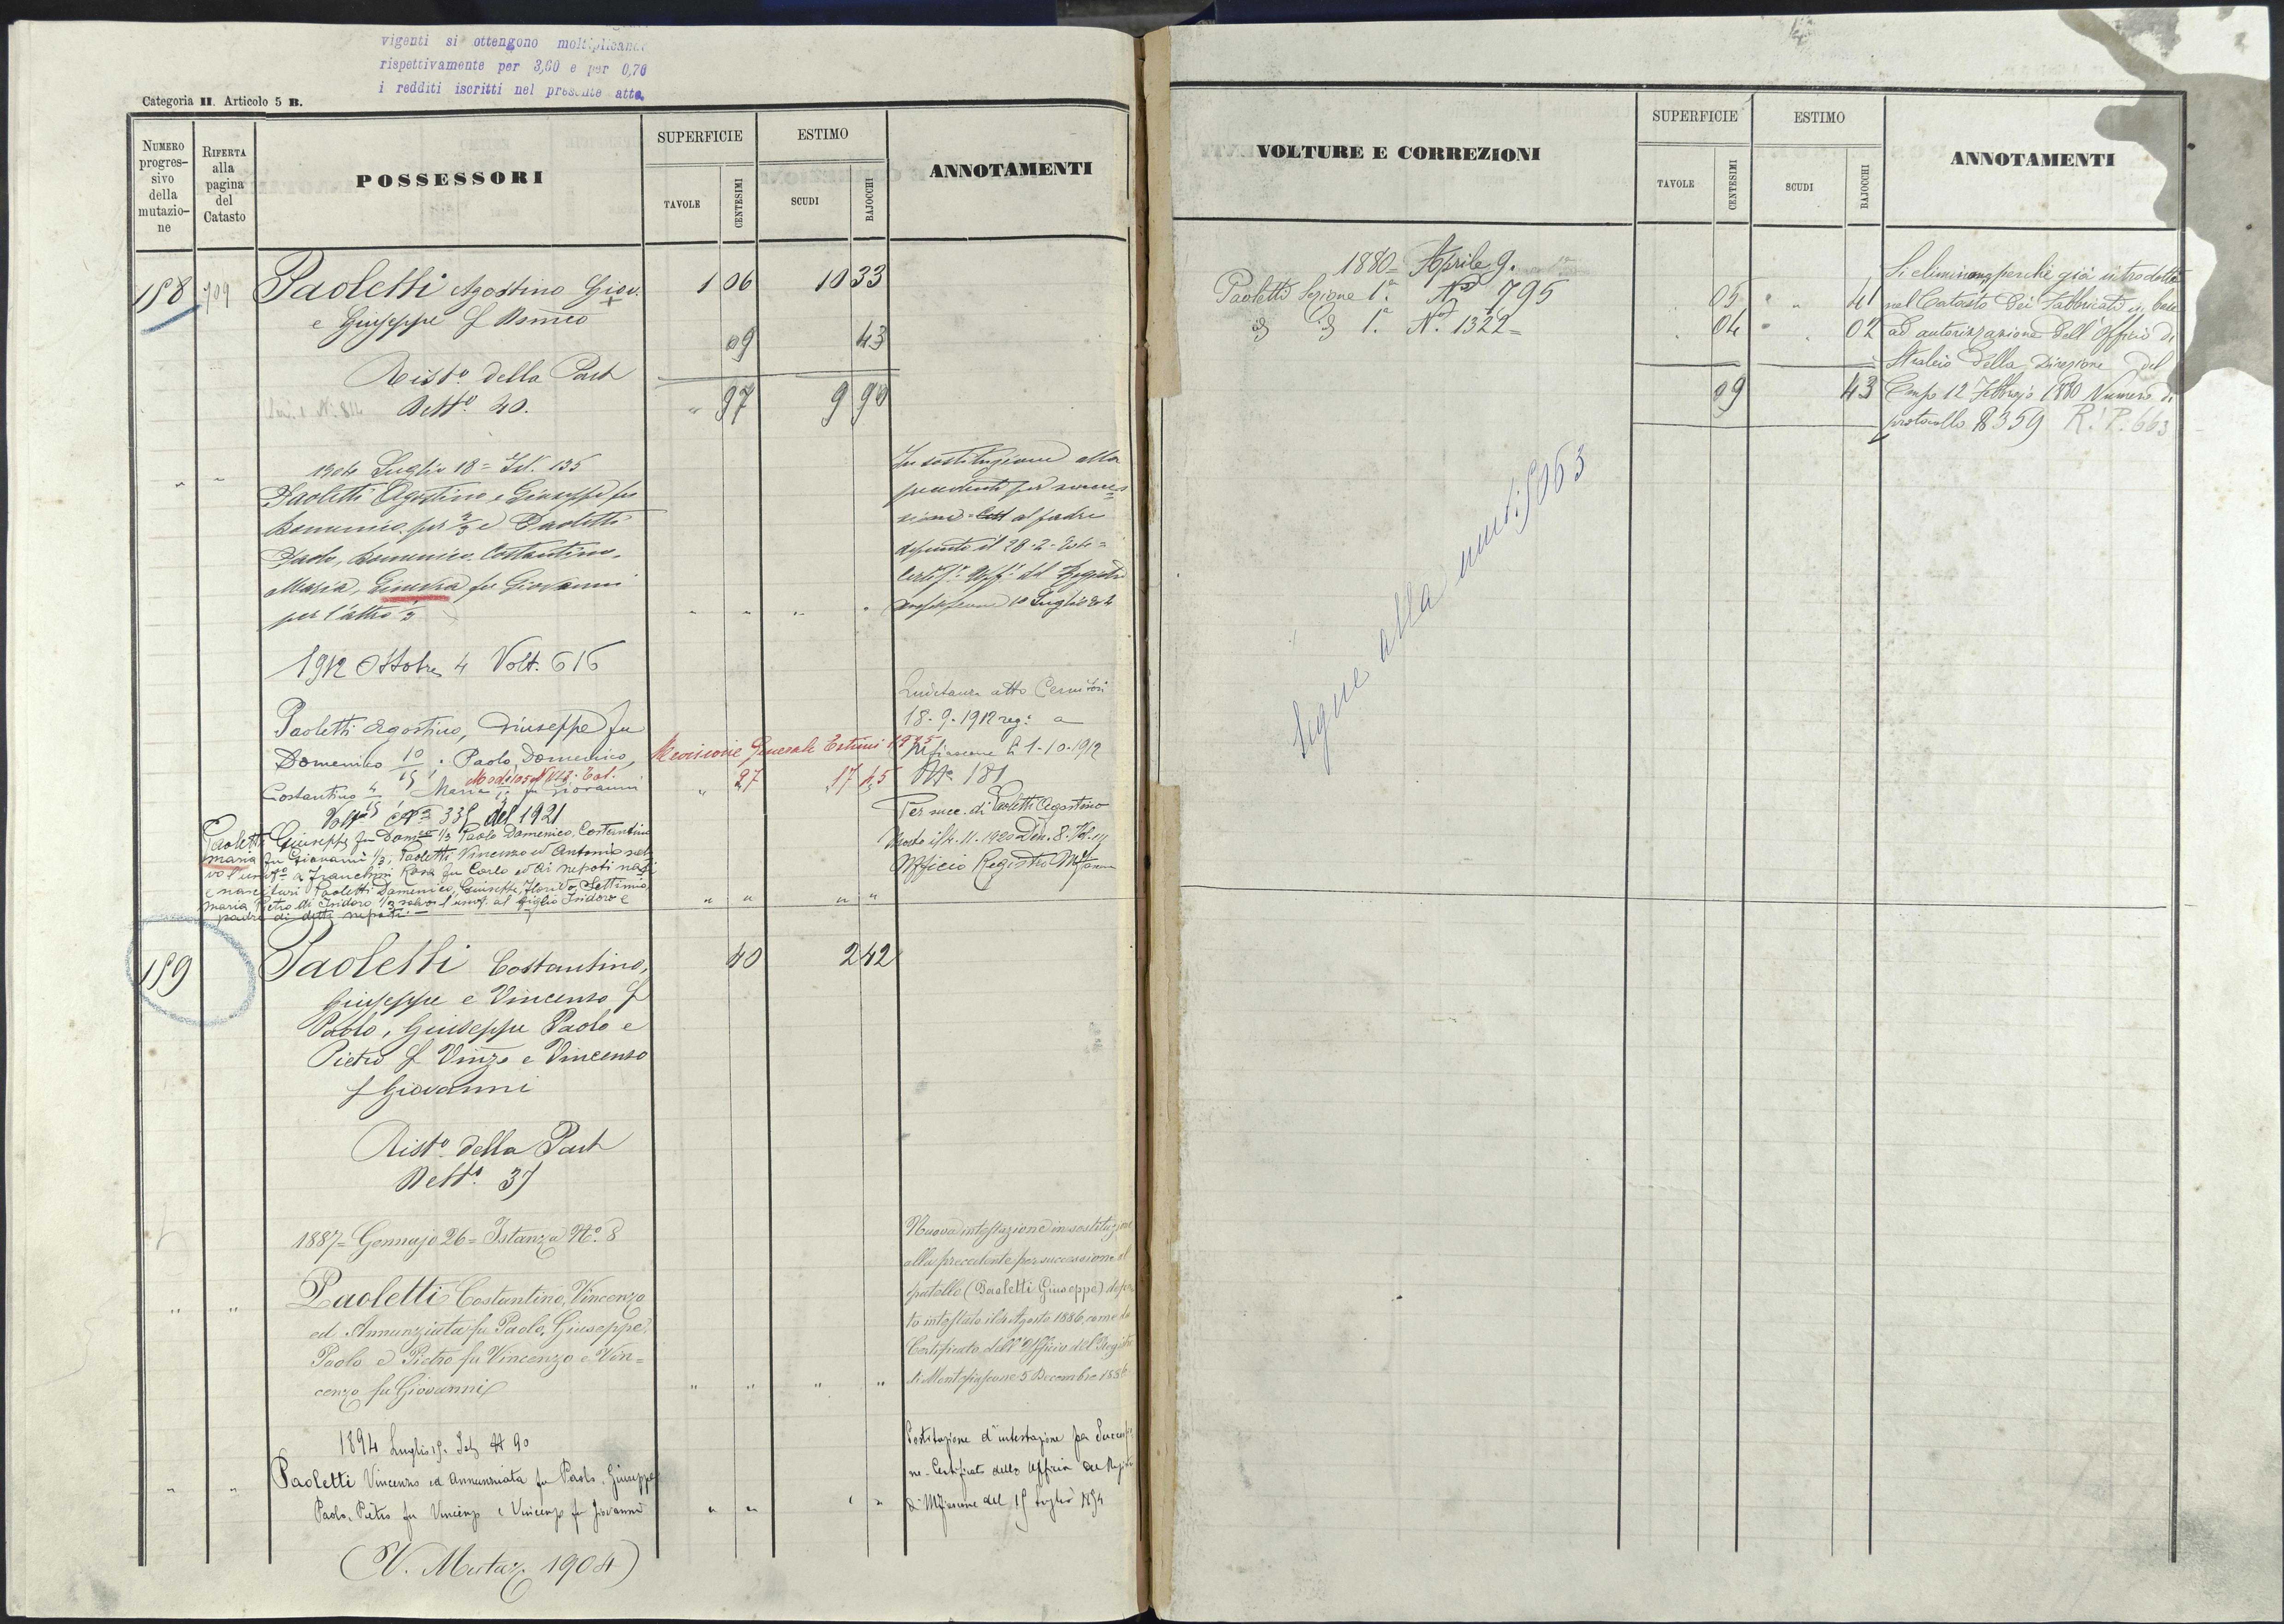 vigenti si ottengono moltiplicando
rispettivamente per 3,60 e per 0,76
i redditi iscritti nel presente atto.
Categoria II. Articolo 5 B.
NUMERO progres-sivo della mutazio-ne
RIFERTA alla pagina del Catasto
POSSESSORI
SUPERFICIE
TAVOLE
CENTESIMI
ESTIMO
SCUDI
BAJOCCHI
ANNOTAMENTI
158 709 Paoletti Agostino Giov. 1 06 10 33
e Giuseppe f Domco 09 43
Rist.o della Part
Dett.o 40. " 97 9 90
1904 Luglio 18 = Ist. 135
Paoletti Agostino e Giuseppe fu
Domenico per 2/3 e Paoletti
Paolo, Domenico, Costantino,
Maria, Ginevra fu Giovanni
per l'altro 3
In sostituzione alla
precedente per succes
sione al padre
defunto il 28-2-
Certif. Uff. del Registro
10 Luglio
1912 Ottobre 4 Volt. 616
Paoletti Agostino, Giuseppe fu
Domenico 10/15, Paolo, Domenico,
Costantino 4/15 Maria 1/15 fu Giovanni
Quietanza atto
18-9-1912 reg. a
Mfiascone li 1-10-1912
No 181
Revisione Generale Estimi
" 97 17 45
No 335 del 1921
Paoletti Giuseppe fu Domco 1/3 Paolo Domenico, Costantino
Maria fu Giovanni 1/3, Paoletti Vincenzo ed Antonio sal
vo l'usufo a Franchini Rosa fu Carlo ed ai nepoti nati
e nascituri Paoletti Domenico, Giuseppe, Florido, Settimio,
Maria Pietro di Isidoro 1/3 salvo l'usuf. al figlio Isidoro e
padre di detti nepoti. " " " "
Per succ. di Paoletti Agostino
Morto il 4.11.1920 Den. 8. Vol. 
Ufficio Registro
159 Paoletti Costantino, 40 2 42
Giuseppe e Vincenzo f
Paolo, Giuseppe Paolo e
Pietro f Vinzo e Vincenzo
f Giovanni
Rist.o della Part
Dett.o 37
1887 = Gennajo 26 = Istanza No. 8
" " Paoletti Costantino, Vincenzo
ed Annunziata fu Paolo, Giuseppe,
Paolo e Pietro fu Vincenzo e Vin=
cenzo fu Giovanni " " " "
Nuova intestazione in sostituzione
alla precedente per successione al
fratello (Paoletti Giuseppe) defun
to intestato il 4 Agosto 1886, come da
Certificato dell'Officio del Registro
di Montefiascone 5 Decembre 1886
1894 Luglio 15. Ist. N 90
" " Paoletti Vincenzo ed Annunziata fu Paolo, Giuseppe
Paolo, Pietro fu Vincenzo e Vincenzo fu Giovanni " " " "
Sostituzione d'intestazione per Successio
ne - Certificato dello Ufficio del Registro
di Mfiascone del 15 Luglio 1894
(V. Mutaz. 1904)
VOLTURE E CORREZIONI
SUPERFICIE
TAVOLE
CENTESIMI
ESTIMO
SCUDI
BAJOCCHI
ANNOTAMENTI
1880 = Aprile 9.
Paoletti Sezione 1a No 795 05 " " 41
1. No. 1322 = 04 02
09 43
Si eliminano, perchè già introdotti
nel Catasto dei Fabbricati in base
ad autorizzazione dell'Officio di
Stralcio della Direzione del
Censo 12 Febbrajo 1880 Numero di
protocollo 8359 R. P. 663
Segue alla mut. 5063